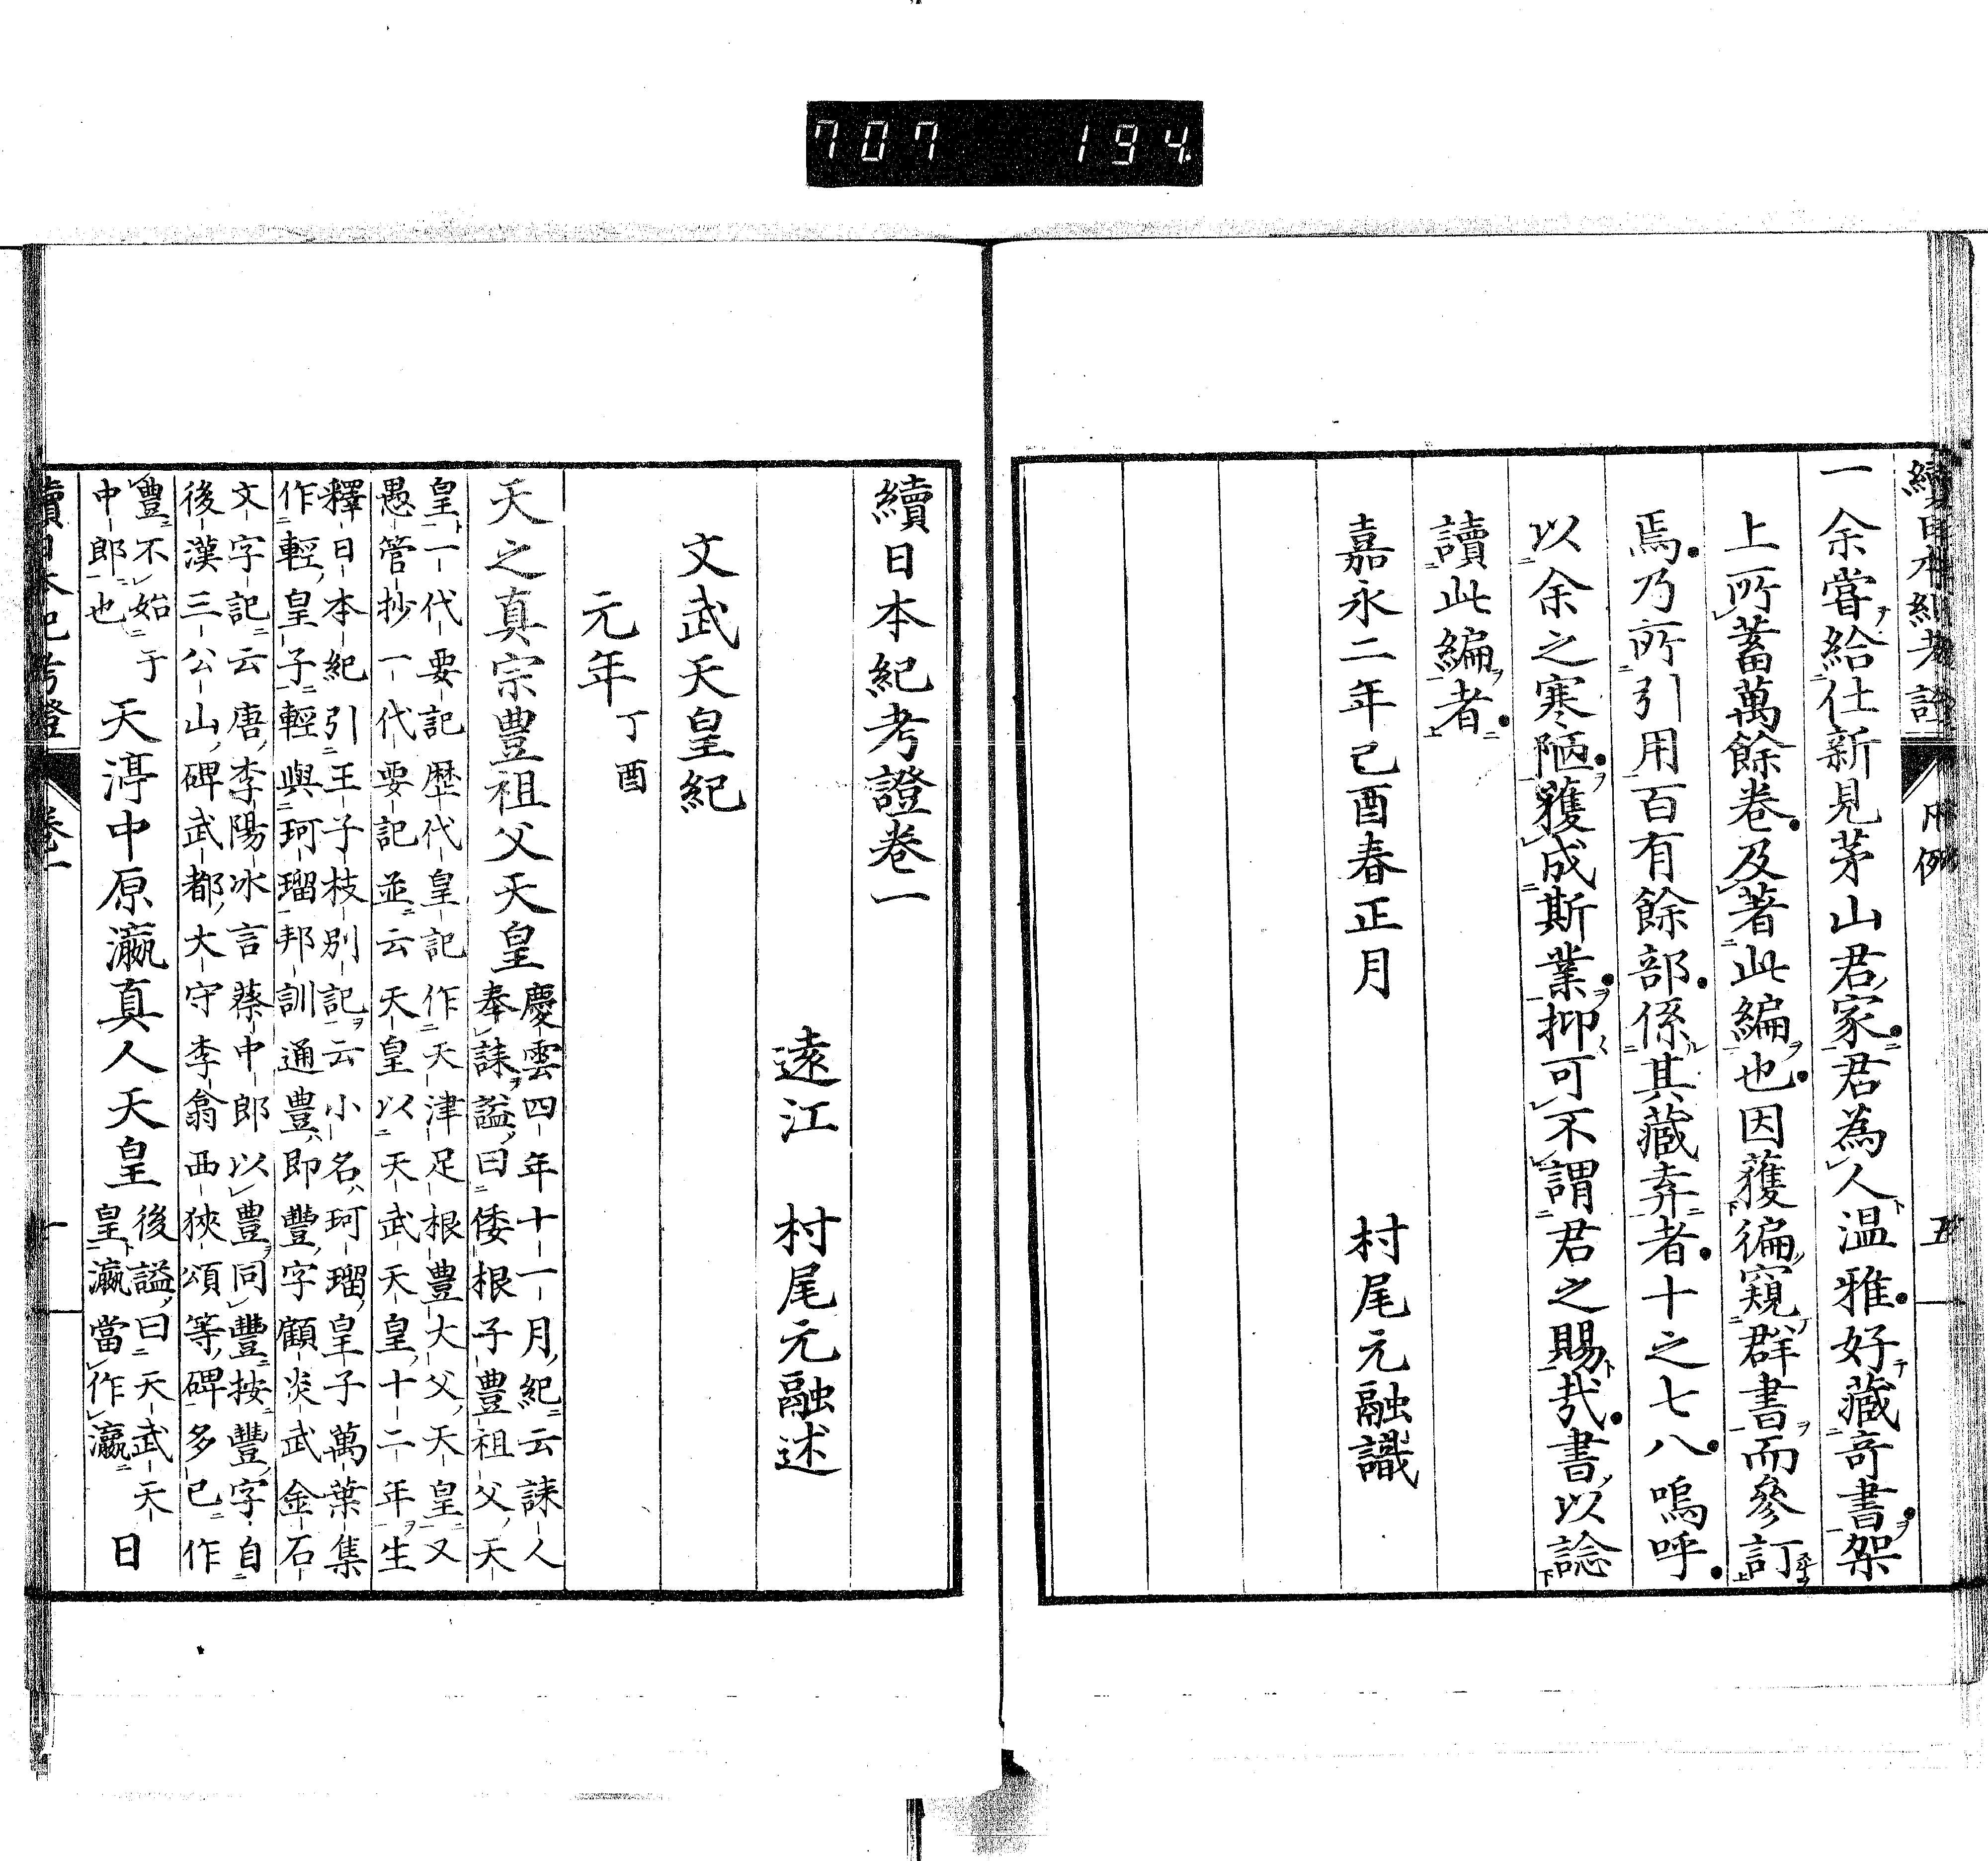 707 194
續日本紀考證 凡例 五
一余嘗給仕新見茅山君家君為人温雅好藏竒書架
上所蓄萬餘卷及著此編也因獲徧窺群書而參訂
焉乃所引用百有餘部係其藏弆者十之七八嗚呼
以余之寒陋獲成斯業抑可不謂君之賜哉書以諗
讀此編者
嘉永二年己酉春正月 村尾元融識
續日本紀考證卷一
遠江 村尾元融述
文武天皇紀
元年丁酉
天之真宗豊祖父天皇
慶雲四年十一月紀云誄人
奉誄謚曰倭根子豊祖父天
皇一代要記歴代皇記作天津足根豊大父天皇又
愚管抄一代要記並云天皇以天武天皇十二年生
釋日本紀引王子枝別記云小名珂瑠皇子萬葉集
作輕皇子輕與珂瑠邦訓通豊即豐字顧炎武金石
文字記云唐李陽冰言蔡中郎以豊同豐按豐字自
後漢三公山碑武都大守李翕西狹頌等碑多已作
豊不始于
中郎也
天渟中原瀛真人天皇
後謚曰天武天
皇瀛當作瀛
日
續日本紀考證 卷一 一